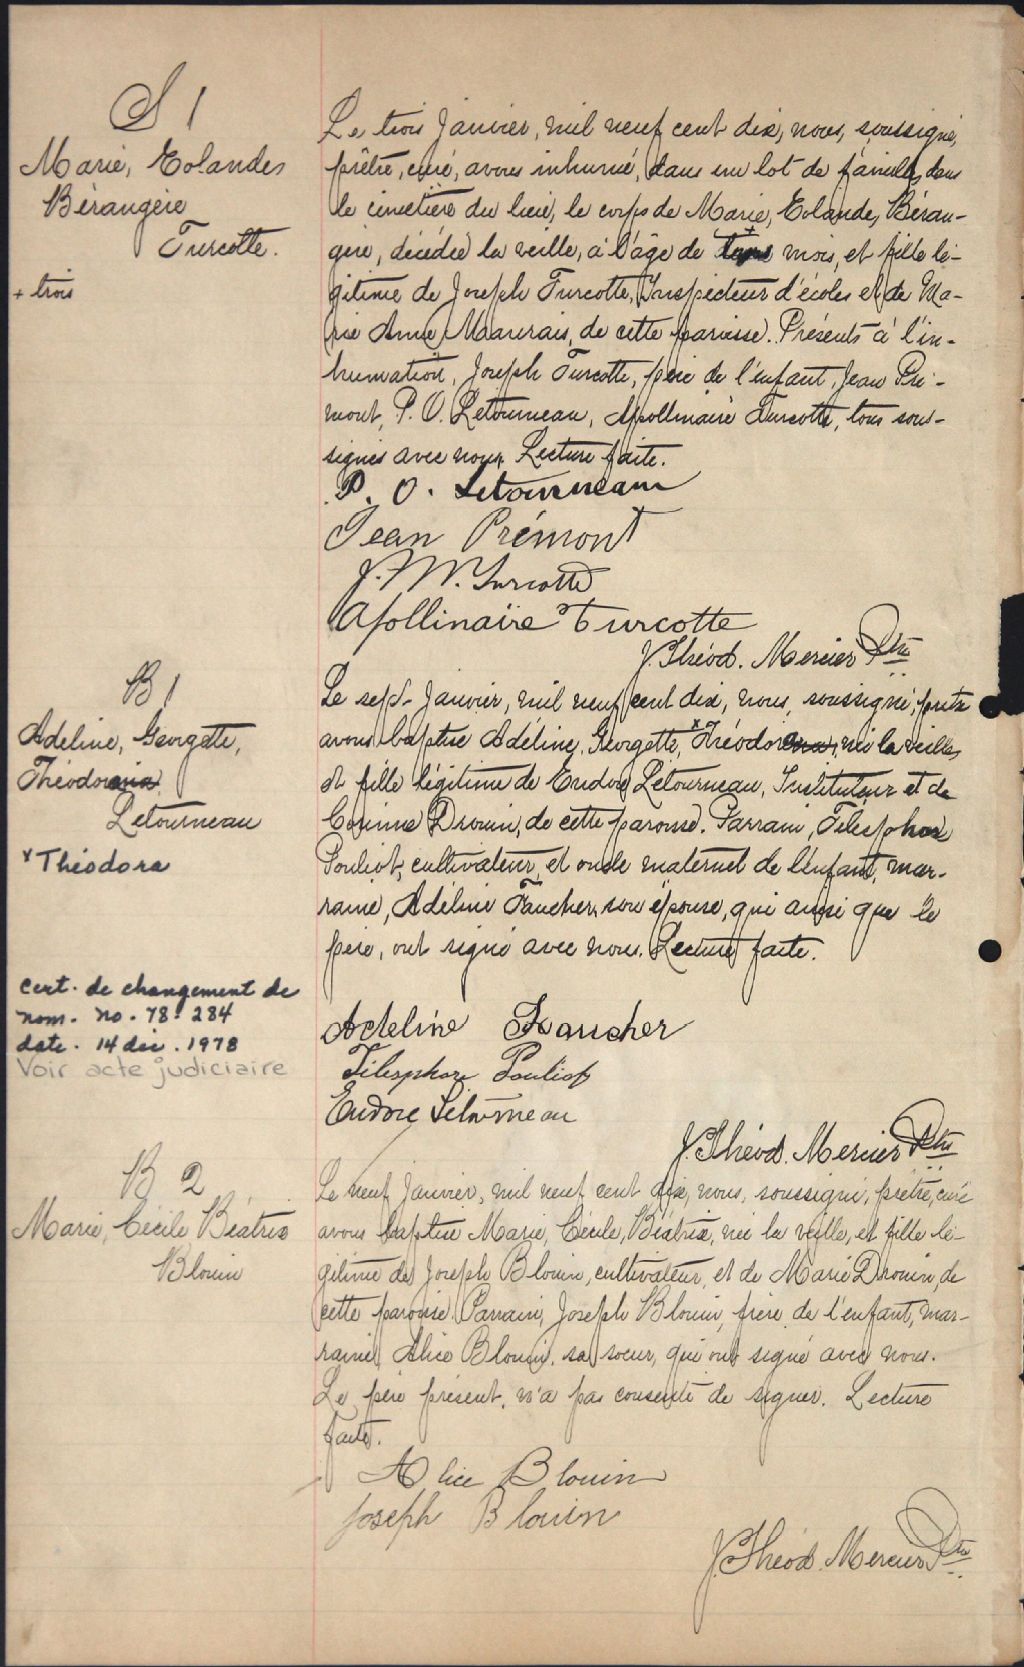 S 1
Marie, Eolandes
Bérangère
Turcotte.
+ trois
Le trois Janvier, mil neuf cent dix, nous, soussigné,
prêtre, curé, avons inhumé, dans un lot de famille, dans
le cimetière du lieu, le corps de Marie, Eolande, Béran-
gère, décédée la veille, à l'âge de + mois, et fille lé-
gitime de Joseph Turcotte, Inspecteur d'écoles et de Ma-
rie Anne Maurais, de cette paroisse. Présents à l'in-
humation, Joseph Turcotte, père de l'enfant, Jean Pré-
mont, P. O. Letourneau, Apollinaire Turcotte, tous sous-
signés avec nous. Lecture faite.
P. O. Letourneau
Jean Prémont
J. W. Turcotte
Apollinaire Turcotte
J. Théod. Mercier Ptre
B 1
Adeline, Georgette,
Théodorina
Letourneau
x Théodora
cert. de changement de
nom. no. 78-284
date. 14 déc. 1978
Voir acte judiciaire
Le sept Janvier, mil neuf cent dix, nous, soussigné, prêtre
avons baptisé Adéline, Georgette, x Théodorina, née la veille,
et fille légitime de Eudore Létourneau, Instituteur et de
Corinne Drouin, de cette paroisse. Parrain, Télesphore
Pouliot, cultivateur, et oncle maternel de l'enfant, mar-
raine, Adéline Faucher, son épouse, qui ainsi que le
père, ont signé avec nous. Lecture faite.
Adeline Faucher
Télesphore Pouliot
Eudore Letourneau
J. Théod. Mercier Ptre
B 2
Marie, Cécile Béatrix
Blouin
Le neuf Janvier, mil neuf cent dix, nous, soussigné, prêtre, curé
avons baptisé Marie, Cécile, Béatrix, née la veille, et fille lé-
gitime de Joseph Blouin, cultivateur, et de Marie Drouin, de
cette paroisse. Parrain, Joseph Blouin, frère de l'enfant, mar-
raine, Alice Blouin, sa soeur, qui ont signé avec nous.
Le père présent, n'a pas consenti de signer. Lecture
faite.
Alice Blouin
Joseph Blouin
J. Théod. Mercier Ptre